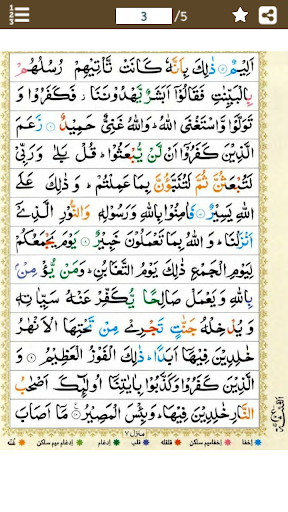 3 /5
اَلِیْمٌ ۝ ذٰلِكَ بِاَنَّهٗ كَانَتْ تَّاْتِیْهِمْ رُسُلُهُمْ
بِالْبَیِّنٰتِ فَقَالُوْۤا اَبَشَرٌ یَّهْدُوْنَنَا ؗ فَكَفَرُوْا وَ
تَوَلَّوْا وَّاسْتَغْنَی اللّٰهُ ؕ وَاللّٰهُ غَنِیٌّ حَمِیْدٌ ۝ زَعَمَ
الَّذِیْنَ كَفَرُوْۤا اَنْ لَّنْ یُّبْعَثُوْا ؕ قُلْ بَلٰی وَرَبِّیْ
لَتُبْعَثُنَّ ثُمَّ لَتُنَبَّؤُنَّ بِمَا عَمِلْتُمْ ؕ وَ ذٰلِكَ عَلَی
اللّٰهِ یَسِیْرٌ ۝ فَاٰمِنُوْا بِاللّٰهِ وَرَسُوْلِهٖ وَالنُّوْرِ الَّذِیْۤ
اَنْزَلْنَا ؕ وَ اللّٰهُ بِمَا تَعْمَلُوْنَ خَبِیْرٌ ۝ یَوْمَ یَجْمَعُكُمْ
لِیَوْمِ الْجَمْعِ ذٰلِكَ یَوْمُ التَّغَابُنِ ؕ وَمَنْ یُّؤْمِنْۢ
بِاللّٰهِ وَیَعْمَلْ صَالِحًا یُّكَفِّرْ عَنْهُ سَیِّاٰتِهٖ
وَ یُدْخِلْهُ جَنّٰتٍ تَجْرِیْ مِنْ تَحْتِهَا الْاَنْهٰرُ
خٰلِدِیْنَ فِیْهَاۤ اَبَدًا ؕ ذٰلِكَ الْفَوْزُ الْعَظِیْمُ ۝ وَ
الَّذِیْنَ كَفَرُوْا وَكَذَّبُوْا بِاٰیٰتِنَاۤ اُولٰٓىِٕكَ اَصْحٰبُ
النَّارِ خٰلِدِیْنَ فِیْهَا ؕ وَبِئْسَ الْمَصِیْرُ ۝ مَاۤ اَصَابَ
منزل ۷
اخفا اخفا میم ساکن قلقله قلب ادغام ادغام میم ساکن غنّه